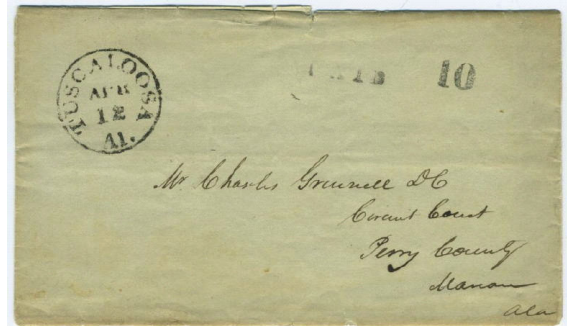 TUSCALOOSA
APR
12
Al.
PAID 10
Mr Charles Grunnell DC
Circuit Court
Perry County
Marion
Ala